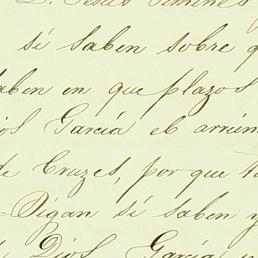 D. Jesus Jimenes
sí saben sobre q
aben en que plazos
ios Garcia el arrien
de Cruzes, por que
Digan sí saben y
Dios Garcia